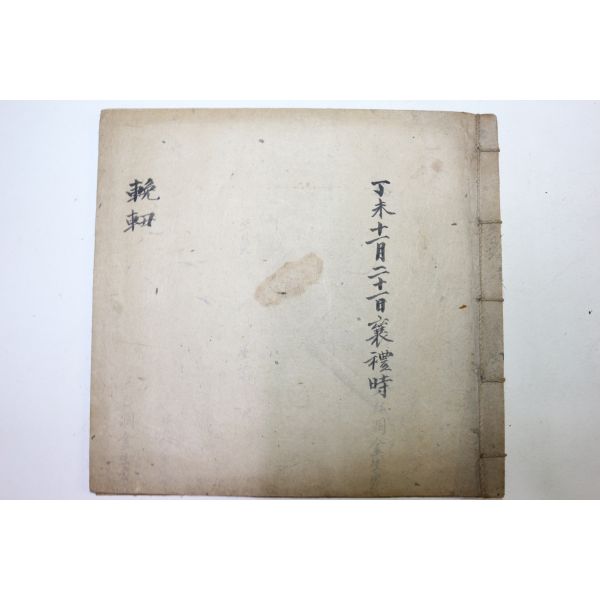 丁未十一月二十一日襄禮時
輓軔